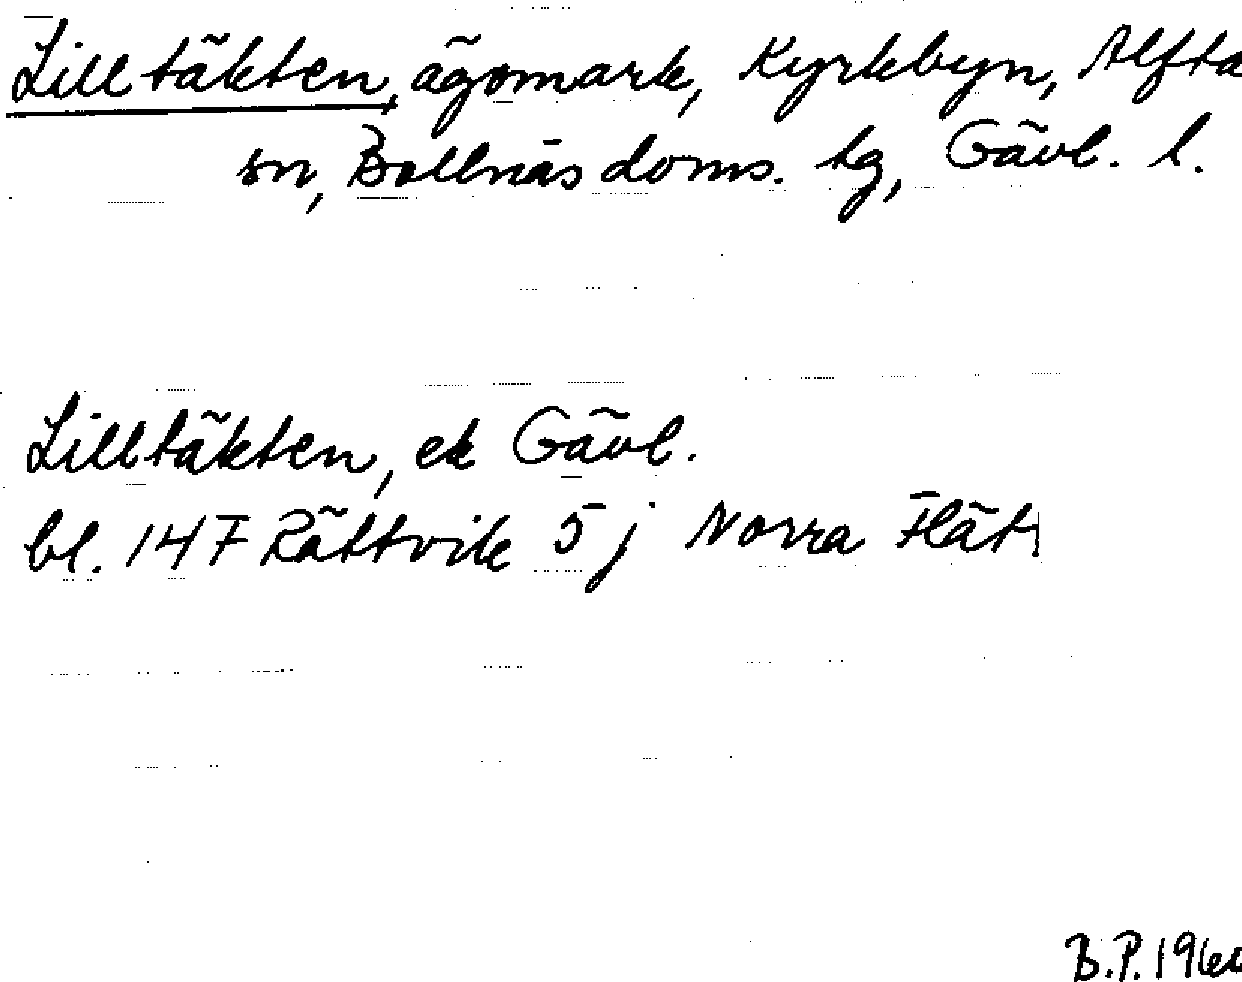 Lilltäkten, ägomark, Kyrkbyn, Alfta
sn, Bollnäs doms. tg, Gävl. l.
Lilltäkten, ek Gävl.
bl. 147 Rättvik 5 j Norra Flät
B.P.196